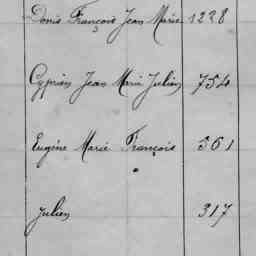 Denis François Jean Marie 1228
Cyprien Jean Marie Julien 754
Eugène Marie François 561
Julien 317